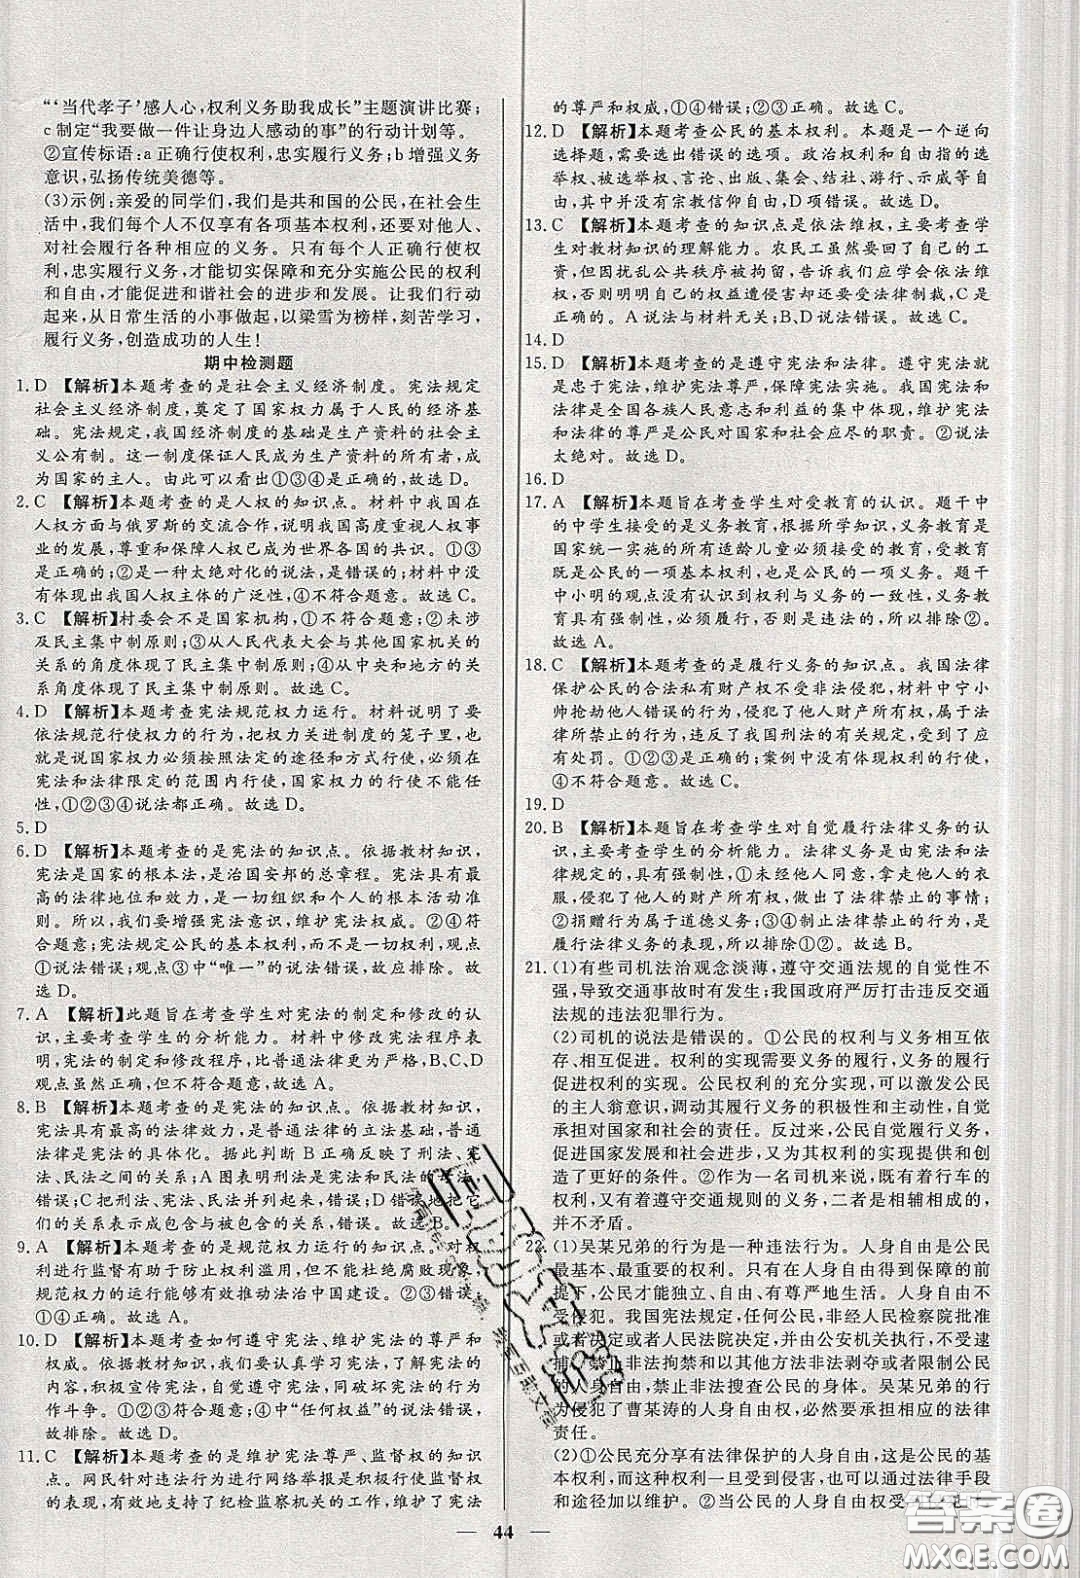 “‘当代孝子’感人心,权利义务助我成长”主题演讲比赛;
c制定“我要做一件让身边人感动的事”的行动计划等。
②宣传标语:a正确行使权利,忠实履行义务;b增强义务
意识,弘扬传统美德等。
(3)示例:亲爱的同学们,我们是共和国的公民,在社会
生活中,我们每个人不仅享有各项基本权利,还要对他人、
对社会履行各种相应的义务。只有每个人正确行使权
利,忠实履行义务,才能切实保障和充分实施公民的权利
和自由,才能促进和谐社会的进步和发展。让我们行动
起来,从日常生活的小事做起,以梁雪为榜样,刻苦学习,
履行义务,创造成功的人生!
期中检测题
1. D 【解析】本题考查的是社会主义经济制度。宪法规定
社会主义经济制度,奠定了国家权力属于人民的经济基
础。宪法规定,我国经济制度的基础是生产资料的社会主
义公有制。这一制度保证人民成为生产资料的所有者,成
为国家的主人。由此可以看出①③④是正确的,故选D。
2. C 【解析】本题考查的是人权的知识点。材料中我国在
人权方面与俄罗斯的交流合作,说明我国高度重视人权事
业的发展,尊重和保障人权已成为世界各国的共识。①③
是正确的;②是一种太绝对化的说法,是错误的;材料中并
没有体现出我国人权主体的广泛性,④不符合题意。故选C。
3. C 【解析】村委会不是国家机构,①不符合题意;②未涉
及民主集中制原则;③从人民代表大会与其他国家机关的
关系的角度体现了民主集中制原则;④从中央和地方的关
系角度体现了民主集中制原则。故选C。
4. D 【解析】本题考查宪法规范权力运行。材料说明了要
依法规范行使权力的行为,把权力关进制度的笼子里,也
就是说国家权力必须按照法定的途径和方式行使,必须在
宪法和法律限定的范围内行使,国家权力的行使不能任
性,①②③④说法都正确。故选D。
5. D
6. D 【解析】本题考查的是宪法的知识点。依据教材知识,
宪法是国家的根本法,是治国安邦的总章程。宪法具有最
高的法律地位和效力,是一切组织和个人的根本活动准
则。所以,我们要增强宪法意识,维护宪法权威。②④符
合题意;宪法规定公民的基本权利,而不是一切权利,观点
①说法错误;观点③中“唯一”的说法错误,应排除。故
选D。
7. A 【解析】此题旨在考查学生对宪法的制定和修改的认
识,主要考查学生的分析能力。材料中修改宪法程序表
明,宪法的制定和修改程序,比普通法律更为严格,B、C、D
观点虽然正确,但不符合题意。故选A。
8. B 【解析】本题考查的是宪法的知识点。依据教材知识,
宪法具有最高的法律效力,是普通法律的立法基础,普通
法律是宪法的具体化。据此判断B正确反映了刑法、宪
法、民法之间的关系;A图表明刑法、宪法与民法的
错误;C把刑法、宪法、民法并列起来,错误;D错误地把它
们的关系表示成包含与被包含的关系,错误。故选B。
9. A 【解析】本题考查的是规范权力运行的知识点。对权
利进行监督有助于防止权利滥用,但不能杜绝腐败现象,
规范权力的运行能够有效推动法治中国建设。②③错误,
①④正确。故选A。
10. D 【解析】本题考查如何遵守宪法、维护宪法的尊严和
权威。依据教材知识,我们要认真学习宪法,了解宪法的
内容,积极宣传宪法,自觉遵守宪法,同破坏宪法的行为
作斗争。①②③正确;④中“任何权益”的说法错误,应排
除。故选D。
11. C 【解析】本题考查的是维护宪法尊严、监督权的知识
点。网民针对违法行为进行网络举报是积极行使监督权
的表现,有效地支持了纪检监察机关的工作,维护了宪法
的尊严和权威,①④错误;②③正确。故选C。
12. D 【解析】本题考查公民的基本权利。本题是一个逆向
选择题,需要选出错误的选项。政治权利和自由指的选
举权、被选举权、言论、出版、集会、结社、游行、示威等自
由,其中并没有宗教信仰自由,D项错误。故选D。
13. C 【解析】本题考查的知识点是依法维权,主要考查学
生对教材知识的理解能力。农民工虽然要回了自己的工
资,但因扰乱公共秩序被拘留,告诉我们应学会依法维
权,否则明明自己的权益遭侵害却要受法律制裁,C是
正确的。A说法与材料无关;B、D说法错误。故选C。
14. D
15. D 【解析】本题考查的是遵守宪法和法律。遵守宪法就
是忠于宪法,维护宪法尊严,保障宪法实施。我国宪法和
法律是全国各族人民意志和利益的集中体现,维护宪法
和法律的尊严是公民对国家和社会应尽的职责。②说法
太绝对。故选D。
16. D
17. A 【解析】本题旨在考查学生对受教育的认识。题干中
的中学生接受的是义务教育,根据所学知识,义务教育是
国家统一实施的所有适龄儿童必须接受的教育,受教育
既是公民的一项基本权利,也是公民的一项义务。题干
中小明的观点没有认识到权利与义务的一致性,义务教
育具有强制性,必须履行,否则是违法的,所以排除②。
故选A。
18. C 【解析】本题考查的是履行义务的知识点。我国法律
保护公民的合法私有财产权不受非法侵犯,材料中宁小
帅抢劫他人错误的行为,侵犯了他人财产所有权,属于法
律所禁止的行为,违反了我国刑法的有关规定,受到了相
应处罚。①②③是正确的;案例中没有体现权利的行使,
④不符合题意。故选C。
19. D
20. B 【解析】本题旨在考查学生对自觉履行法律义务的认
识,主要考查学生的分析能力。法律义务是由宪法和法律
规定的,具有强制性;①未经他人同意,拿走他人的衣
服,侵犯了他人的财产所有权,做出了法律禁止的事情;
②捐赠行为属于道德义务;③④制止法律禁止的行为,是
履行法律义务的表现,所以排除①②。故选B。
21. (1)有些司机法治观念淡薄,遵守交通法规的自觉性不
强,导致交通事故时有发生;我国政府严厉打击违反交通
法规的违法犯罪行为。
(2)司机的说法是错误的。①公民的权利与义务相互依
存、相互促进。权利的实现需要义务的履行,义务的履行
促进权利的实现。公民权利的充分实现,可以激发公民
的主人翁意识,调动其履行义务的积极性和主动性,自觉
承担对国家和社会的责任。反过来,公民自觉履行义务,
促进国家发展和社会进步,又为其权利的实现提供和创
造了更好的条件。②作为一名司机来说,既有着行车的
权利,又有着遵守交通规则的义务,二者是相辅相成的,
并不矛盾。
22. (1)吴某兄弟的行为是一种违法行为。人身自由是公民
最基本、最重要的权利。只有在人身自由得到保障的前
提下,公民才能独立、自由、有尊严地生活。人身自由不
受侵犯。我国宪法规定,任何公民,非经人民检察院批准
或者决定或者人民法院决定,并由公安机关执行,不受逮
捕。禁止非法拘禁和以其他方法非法剥夺或者限制公民
的人身自由,禁止非法搜查公民的身体。吴某兄弟的行
为侵犯了曹某涛的人身自由权,应承担相应的法律
责任。
(2)①公民充分享有法律保护的人身自由,这是公民的基
本权利,而这种权利一旦受到侵害,也可以通过法律手段
和途径加以维护。②当公民的人身自由权受
44
答案圈
MXQE.COM